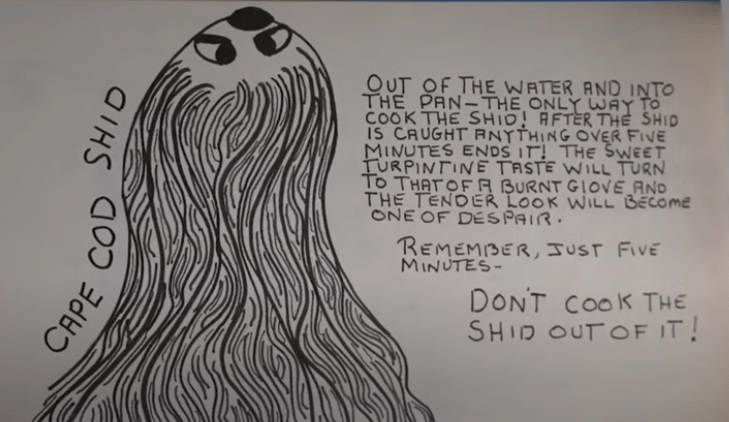 CAPE COD SHID
OUT OF THE WATER AND INTO
THE PAN–THE ONLY WAY TO
COOK THE SHID! AFTER THE SHID
IS CAUGHT ANYTHING OVER FIVE
MINUTES ENDS IT! THE SWEET
TURPINTINE TASTE WILL TURN
TO THAT OF A BURNT GLOVE AND
THE TENDER LOOK WILL BECOME
ONE OF DESPAIR.
REMEMBER, JUST FIVE
MINUTES–
DON'T COOK THE
SHID OUT OF IT!